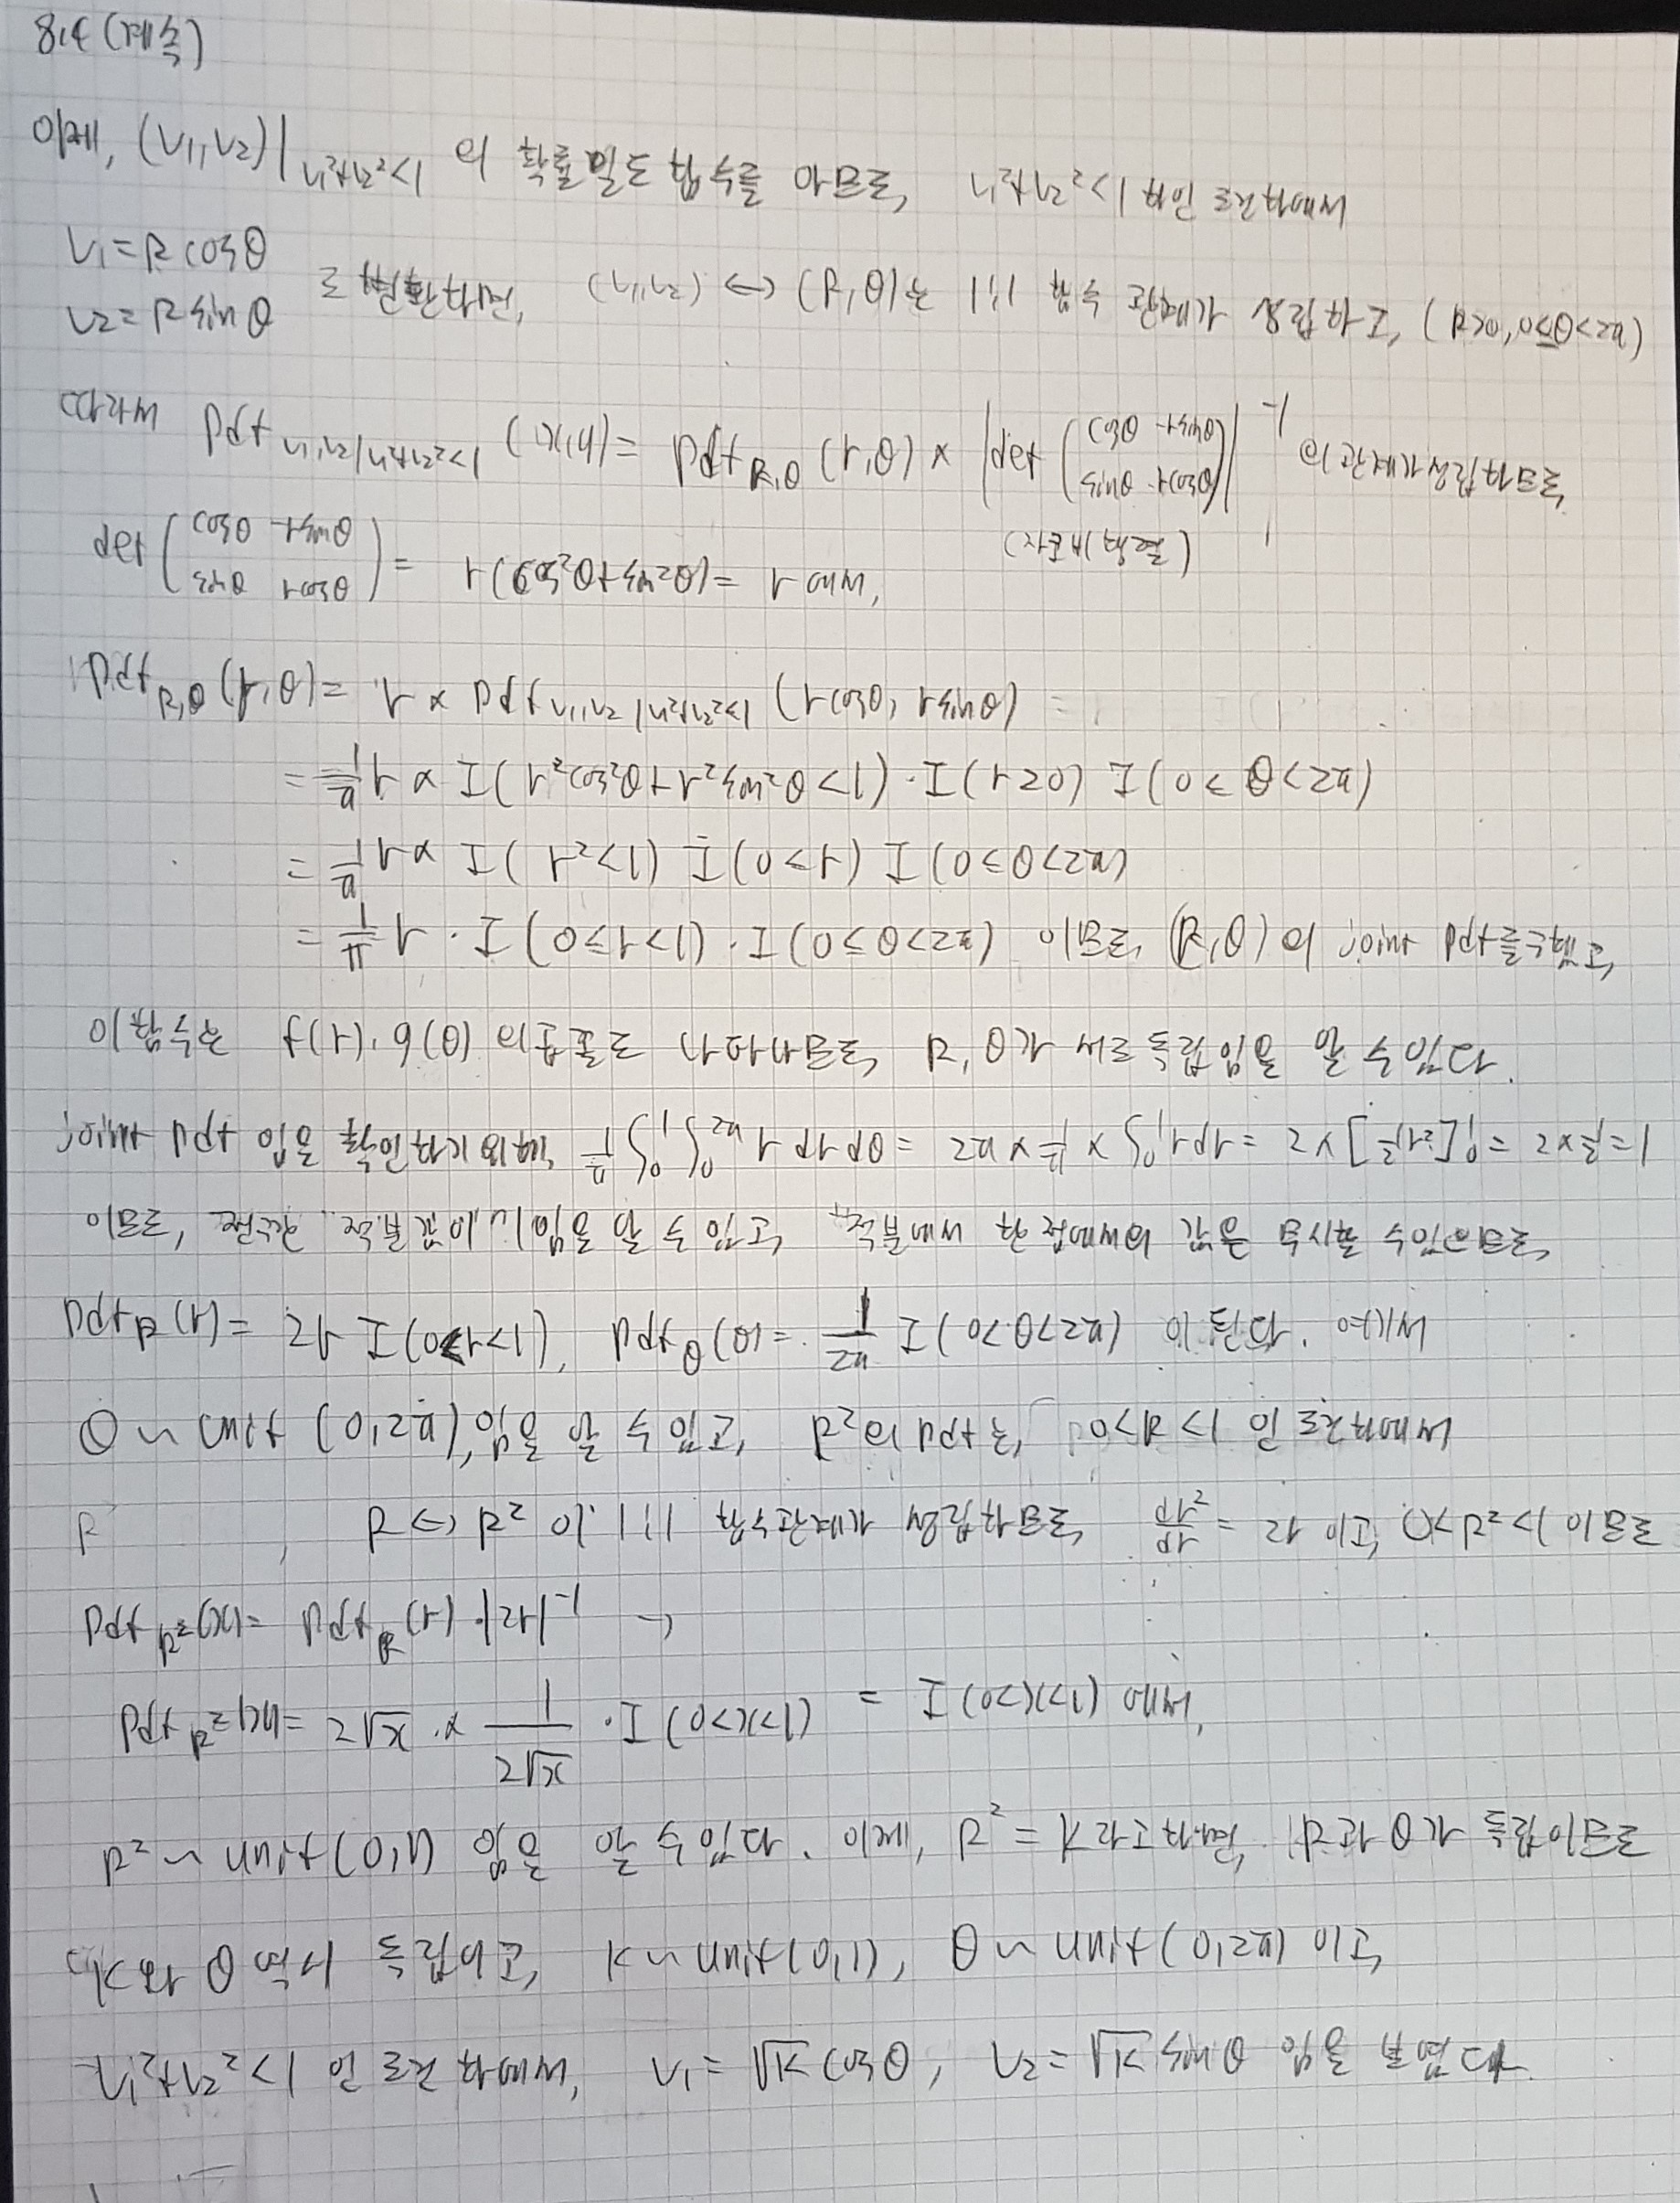 8.4 (계속)
이제, (V₁,V₂)|V₁²+V₂²<1 의 확률밀도 함수를 아므로, V₁²+V₂²<1 하인 조건하에서
V₁=R cosθ
V₂=R sinθ 로 변환하면, (V₁,V₂) ↔ (R,θ)는 1:1 함수 관계가 성립하고, (R>0, 0≤θ<2π)
따라서 pdf V₁,V₂|V₁²+V₂²<1 (x,y) = pdf R,θ (r,θ) × |det (cosθ -rsinθ sinθ rcosθ)|⁻¹ 의 관계가 성립하므로,
(자코비 행렬)
det (cosθ -rsinθ sinθ rcosθ) = r(cos²θ+sin²θ) = r 에서,
pdf R,θ (r,θ) = r × pdf V₁,V₂|V₁²+V₂²<1 (rcosθ, rsinθ) =
= 1/π r × I(r²cos²θ+r²sin²θ<1) · I(r≥0) I(0≤θ<2π)
= 1/π r × I(r²<1) I(r≥0) I(0≤θ<2π)
= 1/π r · I(0≤r<1) · I(0≤θ<2π) 이므로, (R,θ) 의 joint pdf를 구했고,
이 함수는 f(r)·g(θ) 의 곱꼴로 나타나므로, R,θ가 서로 독립임을 알 수 있다.
joint pdf 임을 확인하기 위해, ∫₀¹∫₀²π 1/π r dr dθ = 2π × 1/π × ∫₀¹ r dr = 2 × [½r²]₀¹ = 2×½ = 1
이므로, 전구간 적분값이 1임을 알 수 있고, 적분에서 한 점에서의 값은 무시할 수 있으므로,
pdf R (r) = 2r I(0<r<1), pdf θ (θ) = 1/2π I(0<θ<2π) 이 된다. 여기서
θ ~ unif (0,2π), 임을 알 수 있고, R²의 pdf는, 0<R<1 인 조건하에서
R R ↔ R² 이 1:1 함수관계가 성립하므로, dr²/dr = 2r 이고, 0<R²<1 이므로
pdf R² (x) = pdf R (r) · |2r|⁻¹
pdf R² (x) = 2√x × 1/2√x · I(0<x<1) = I(0<x<1) 에서,
R² ~ unif (0,1) 임을 알 수 있다. 이제, R² = K 라고 하면, R과 θ가 독립이므로
K와 θ 역시 독립이고, K ~ unif (0,1), θ ~ unif (0,2π) 이고,
V₁²+V₂²<1 인 조건 하에서, V₁ = √K cosθ, V₂ = √K sinθ 임을 보였다.